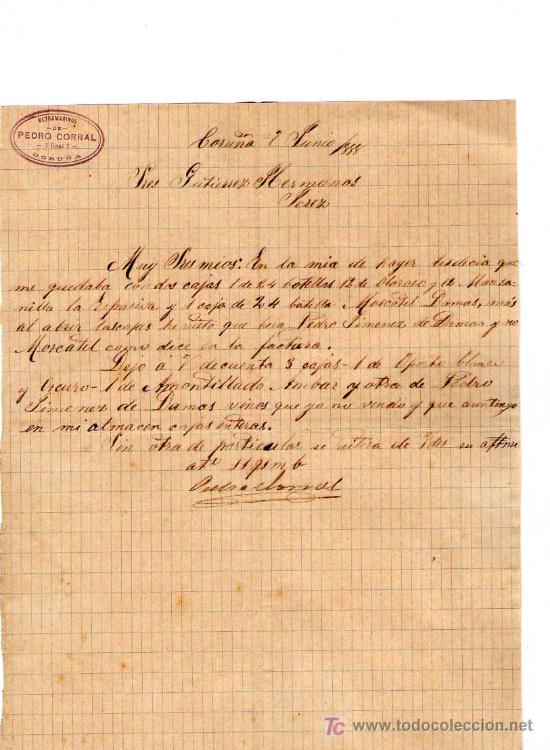 ULTRAMARINOS
DE
PEDRO CORRAL
7 Real 7
CORUÑA
Coruña 7 Junio /888
Sres Gutierrez Hermanos
Jerez
Muy Sres mios: En la mia de hayer les decia que
me quedaba con dos cajas 1 de 24 botellas 12 de Oloroso y 12 Manza-
nilla la Espasiva y 1 caja de 24 botella Moscatel Damas, más
al abrir las cajas he visto que hera Pedro Jimenez de Damas y no
Moscatel como dice en la factura.
Dejo a Vds cuenta 3 cajas - 1 de Oporto blanco
y oscuro - 1 de Amontillado Ambar y otra de Pedro
Jimenez de Damas vinos que yo no vendo y que aun tengo
en mi almacen cajas enteras.
Sin otra de particular se reitera de Vdes su aftmo
Pedro Corral
TC www.todocoleccion.net